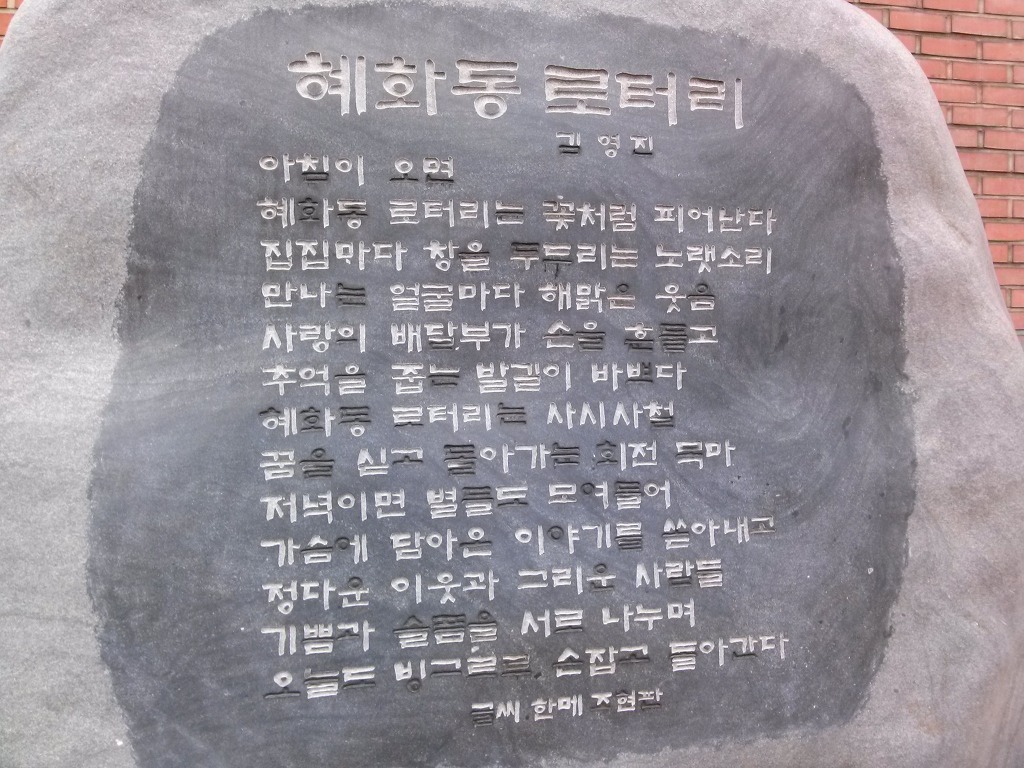 혜화동 로터리
김영진
아침이 오면
혜화동 로터리는 꽃처럼 피어난다
집집마다 창을 두드리는 노랫소리
만나는 얼굴마다 해맑은 웃음
사랑의 배달부가 손을 흔들고
추억을 줍는 발길이 바쁘다
혜화동 로터리는 사시사철
꿈을 싣고 돌아가는 회전 목마
저녁이면 별들도 모여들어
가슴에 담아온 이야기를 쏟아내고
정다운 이웃과 그리운 사람들
기쁨과 슬픔을 서로 나누며
오늘도 빙그르르 손잡고 돌아간다
글씨 한메 조현판